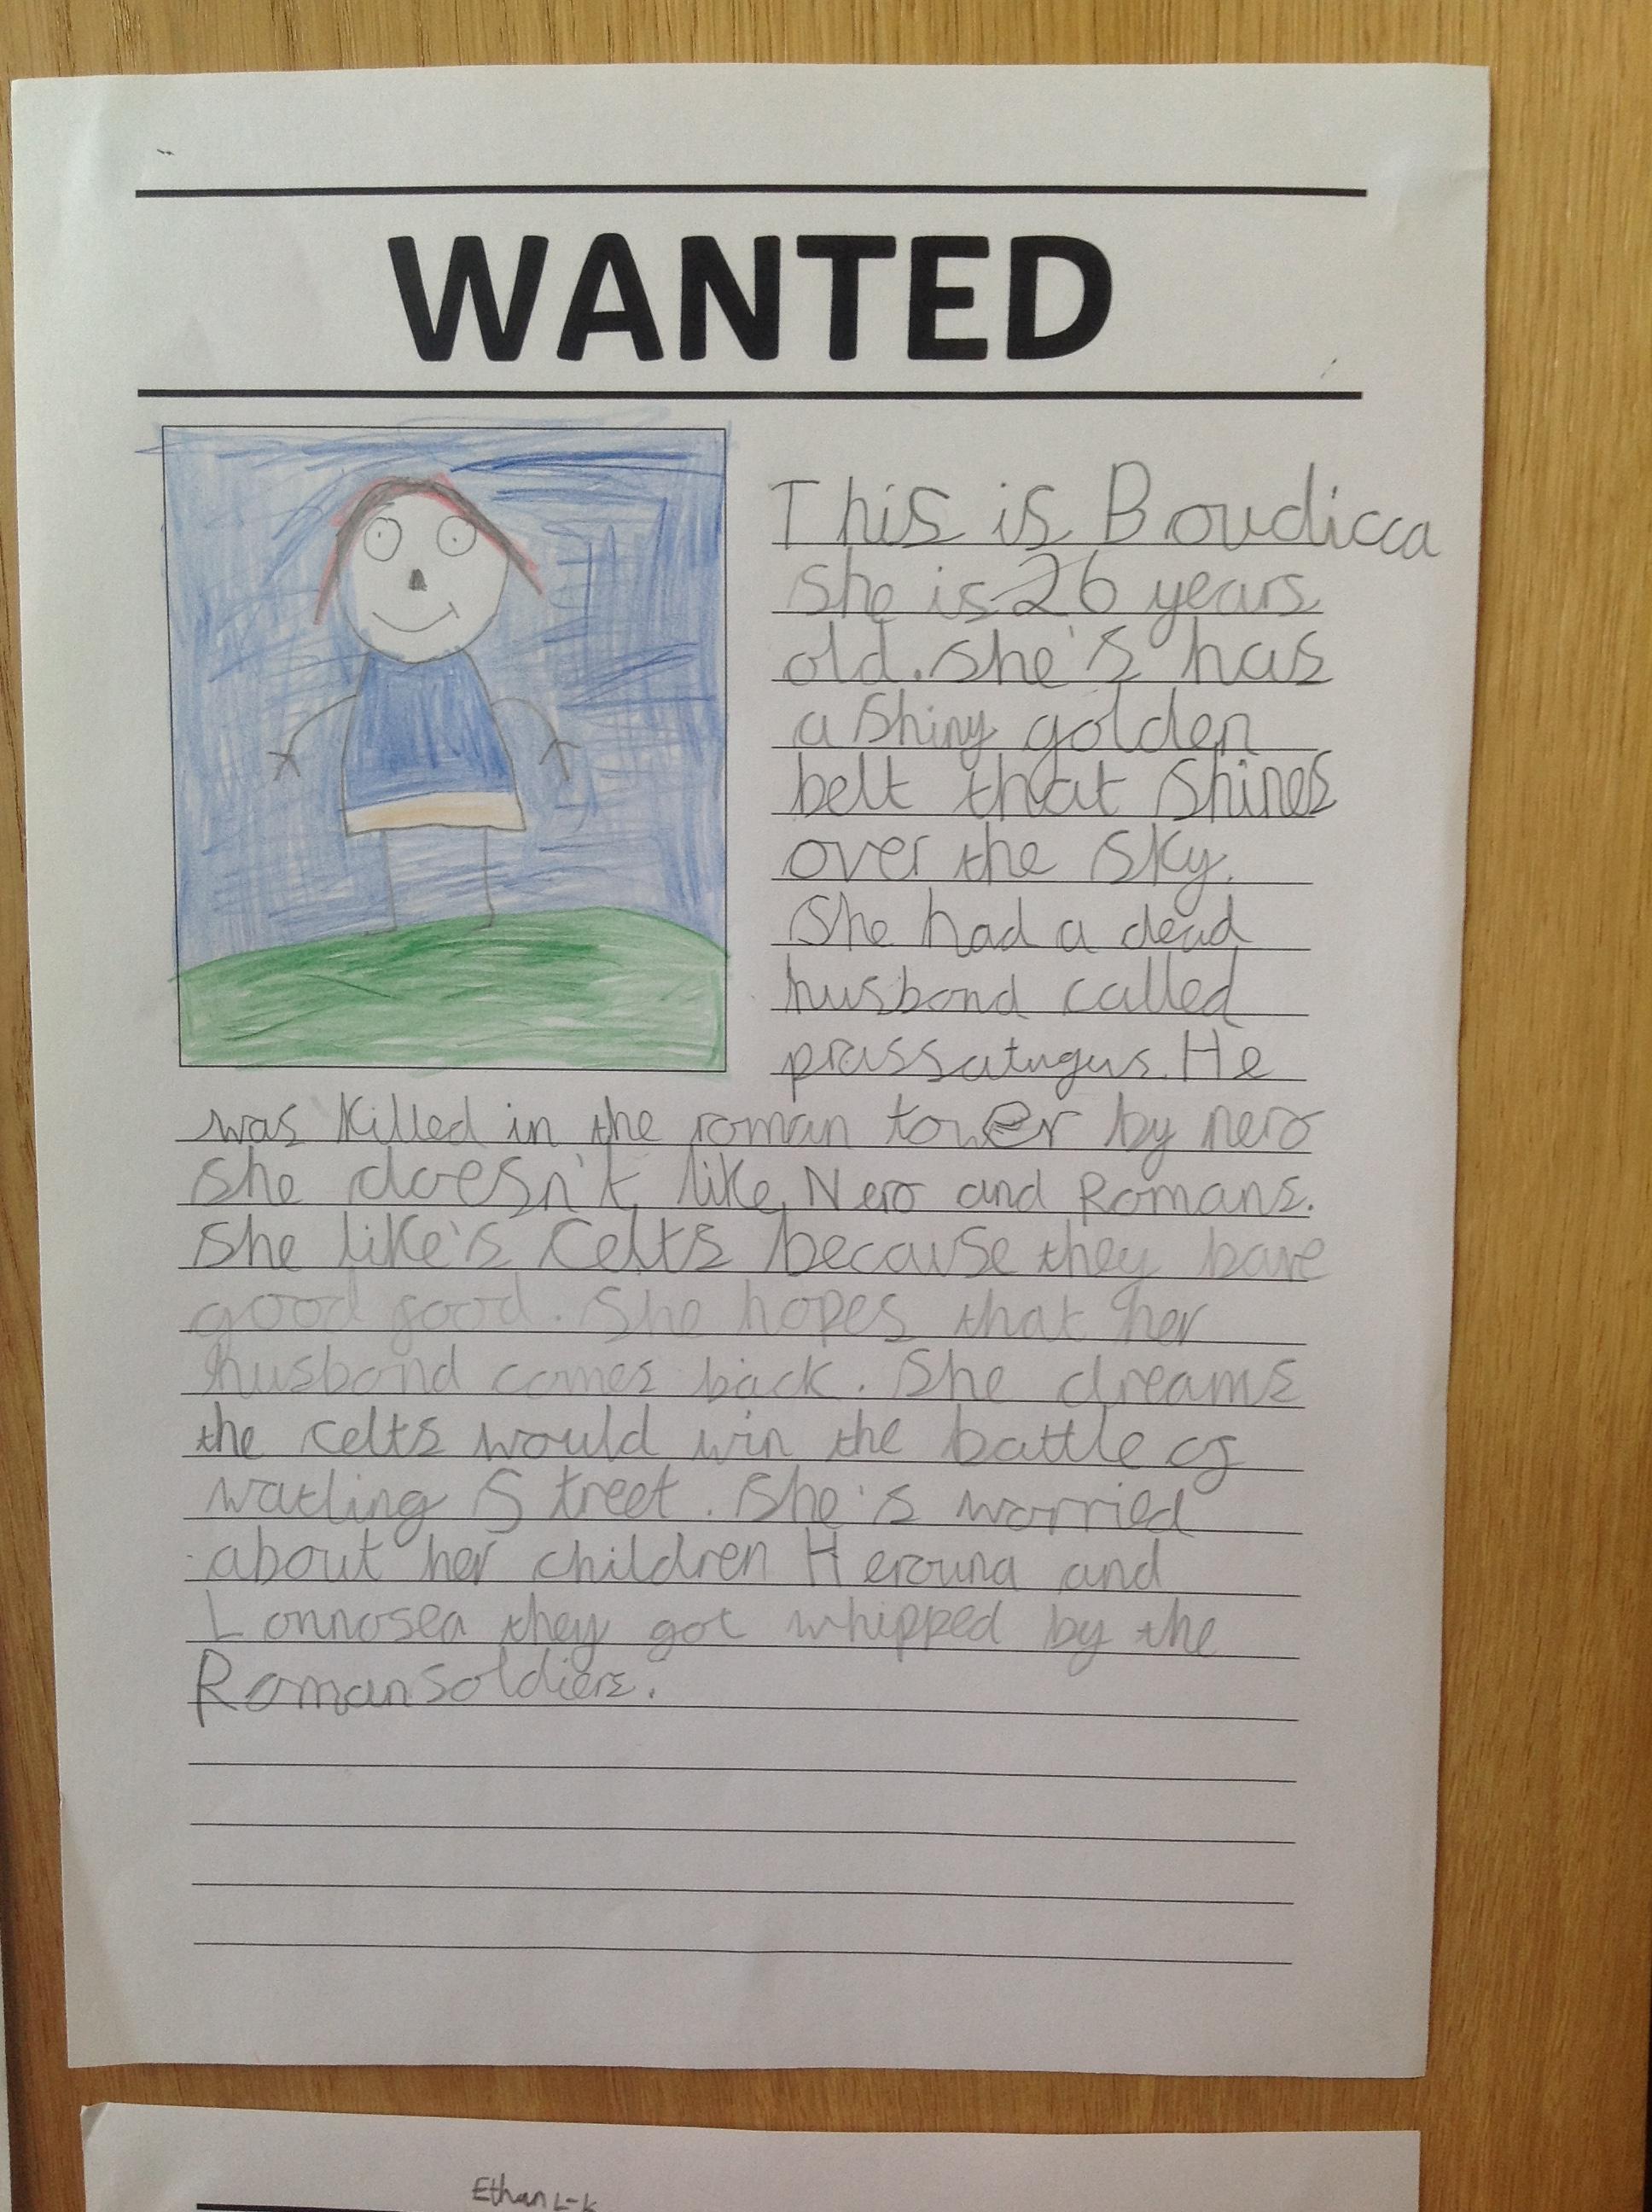 WANTED
This is Boudicca
she is 26 years
old. she's has
a shiny golden
belt that shines
over the sky.
She had a dead
husbond called
prassatugus. He
was killed in the roman tower by nero
she doesn't like Nero and Romans.
She like's Celts because they have
good food. She hopes that her
husbond comes back. She dreams
the celts would win the battle of
watling Street. She's worried
about her children Herouna and
Lonnosea they got whipped by the
Roman soldiers.
Ethan L-K